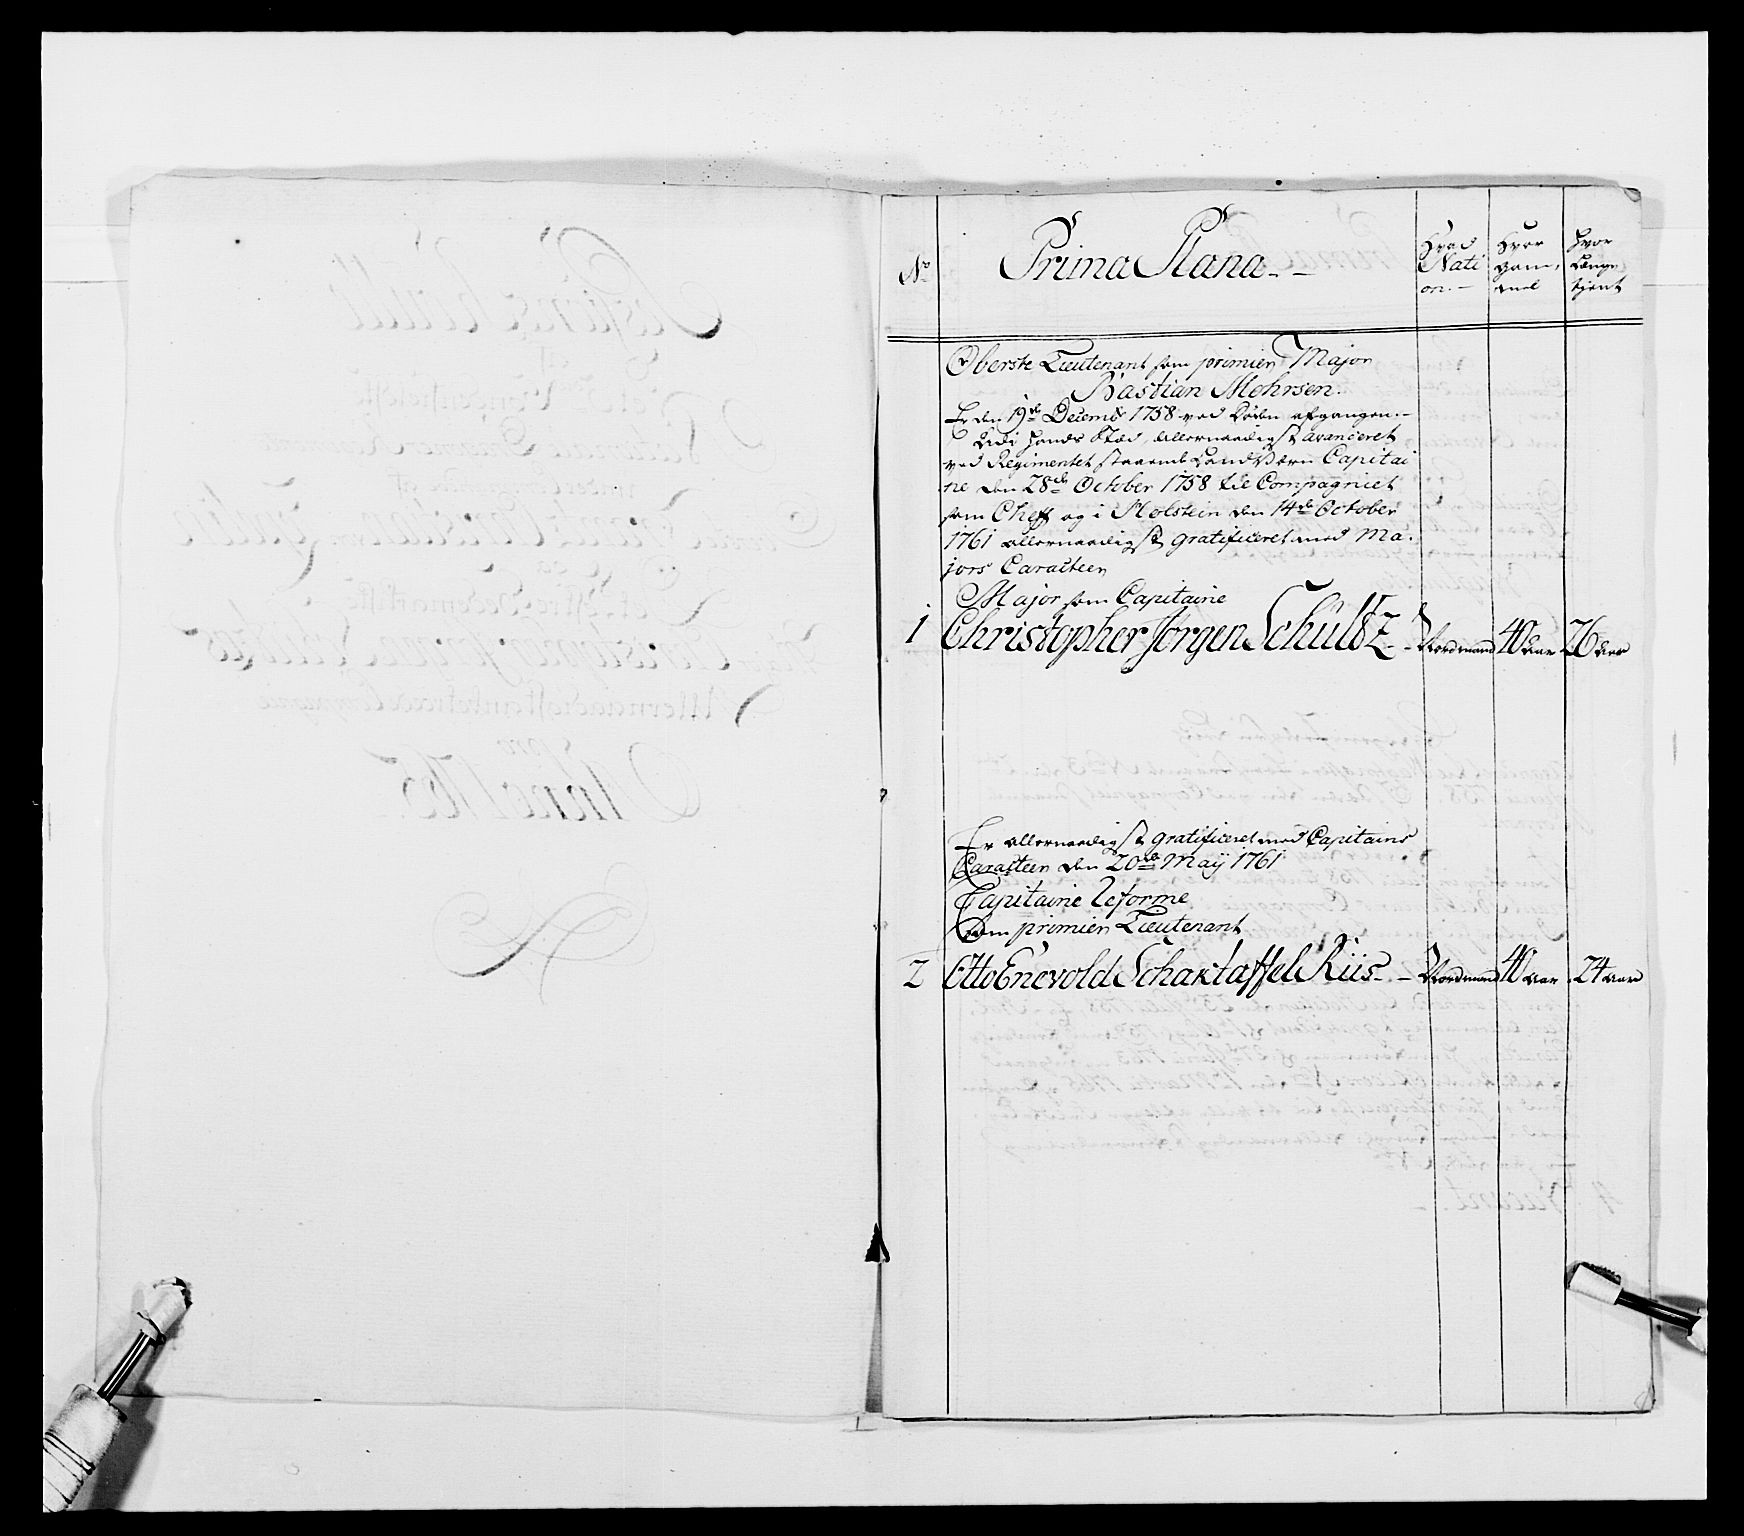 No
Prima Plana
Hvad
Nati
on.
Hvor
gam,
mel
Hvor
Længe
tjent
Oberste Lieutenant som primier Major
Bastian Mohrsen.
Er den 19de Decembr 1758 ved Døden afgangen.
Udi hands Stæd allernaadigst avanceret
ved Regimentet staaende LandVærn Capitai
ne den 28de October 1758 til Compagniet
som Cheff og i Holstein den 14de October
1761 allernaadigst gratificeret med Ma,
jors Caracteer
Major som Capitaine
1 Christopher Jørgen Schultz Nordmand 40 aar 26 aar
Er allernaadigst gratificeret med Capitains
Caracteer den 20de May 1761
Capitaine Reforme
Som primier Lieutenant
2 Otto Enevold Schaktaffel Riis Nordmand 40 aar 24 aar